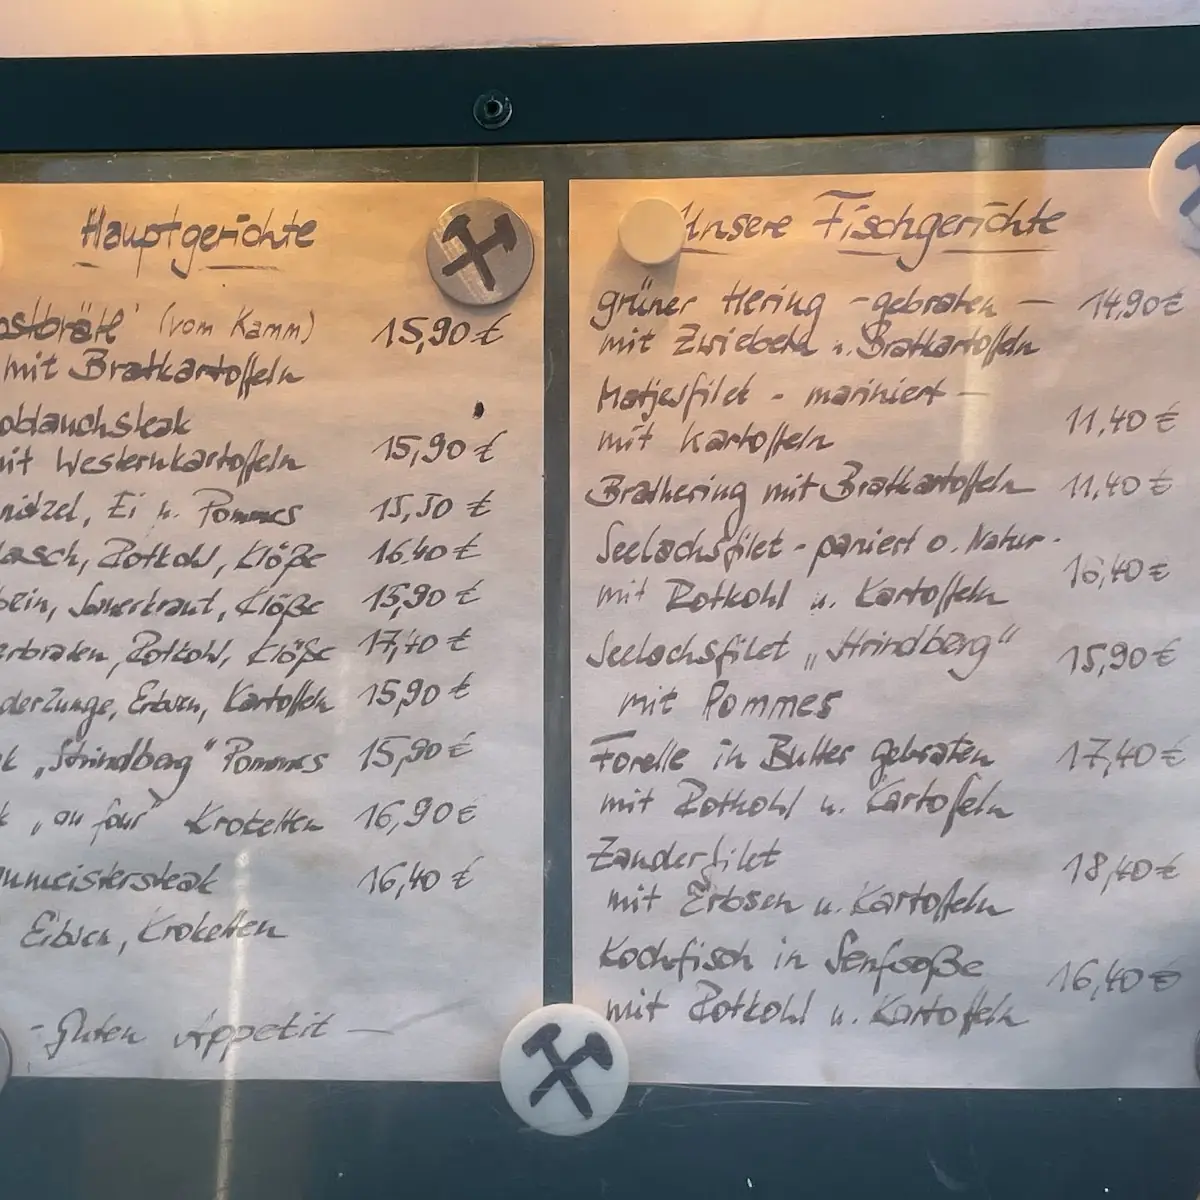 Hauptgerichte
(vom Kamm) 15,90 €
mit Bratkartoffeln
oblauchsteak
mit Westernkartoffeln 15,90 €
nitzel, Ei u. Pommes 15,50 €
lasch, Rotkohl, Klöße 16.40 €
bein, Sauerkraut, Klöße 15,90 €
erbraten, Rotkohl, Klöße 17,40 €
derzunge, Erbsen, Kartoffeln 15,90 €
k „Strindberg“ Pommes 15,90 €
k „au four“ Kroketten 16,90 €
umeistersteak 16,40 €
Erbsen, Kroketten
- Guten Appetit —
Unsere Fischgerichte
grüner Hering - gebraten — 14,90 €
mit Zwiebeln u. Bratkartoffeln
Matjesfilet - mariniert —
mit Kartoffeln 11,40 €
Brathering mit Bratkartoffeln 11,40 €
Seelachsfilet - paniert o. Natur -
mit Rotkohl u. Kartoffeln 16,40 €
Seelachsfilet „Strindberg“ 15,90 €
mit Pommes
Forelle in Butter gebraten 17,40 €
mit Rotkohl u. Kartoffeln
Zanderfilet 18,40 €
mit Erbsen u. Kartoffeln
Kochfisch in Senfsoße 16,40 €
mit Rotkohl u. Kartoffeln